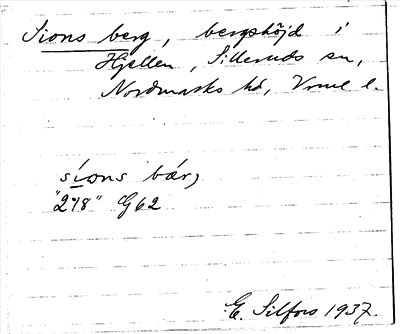 Sions berg, bergshöjd i
Hjellen, Silleruds sn,
Nordmarks hd, Vrml l.
síons bær,
"248" G62
E. Silfors 1937.